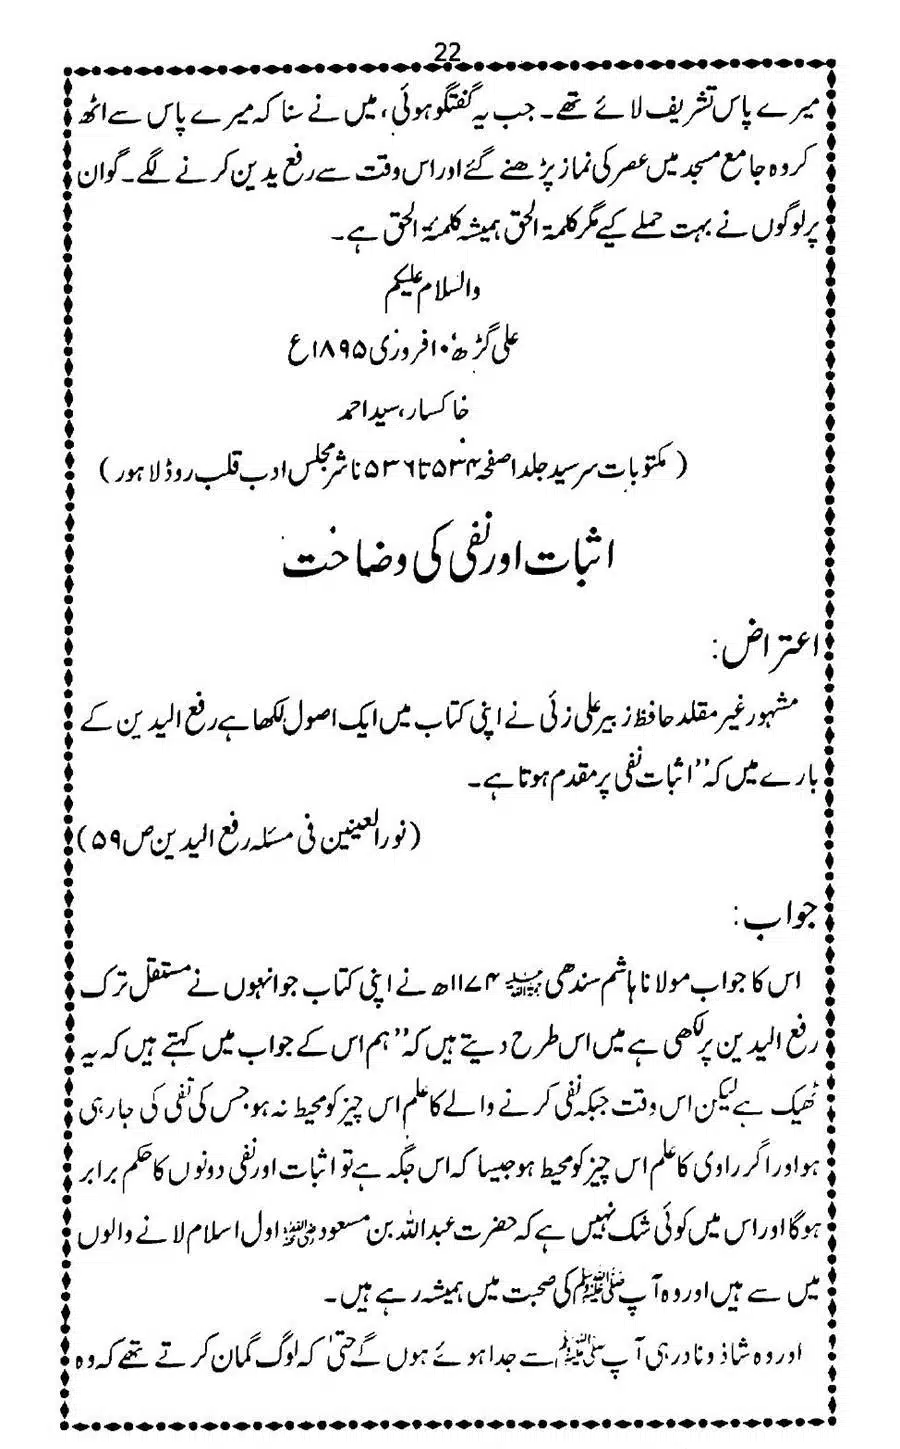 22
میرے پاس تشریف لائے تھے۔ جب یہ گفتگو ہوئی، میں نے سنا کہ میرے پاس سے اٹھ
کر وہ جامع مسجد میں عصر کی نماز پڑھنے گئے اور اس وقت سے رفع یدین کرنے لگے۔ گو ان
پر لوگوں نے بہت حملے کیے مگر کلمۃ الحق ہمیشہ کلمۂ الحق ہے۔
والسلام علیکم
علی گڑھ ۱۰ فروزی ۱۸۹۵ع
خاکسار، سید احمد
( مکتوبات سرسید جلد ۱ صفحہ ۵۳۴ تا ۵۳۶ ناشر مجلس ادب قلب روڈ لاہور )
اثبات اور نفی کی وضاحت
اعتراض:
مشہور غیر مقلد حافظ زبیر علی زئی نے اپنی کتاب میں ایک اصول لکھا ہے رفع الیدین کے
بارے میں کہ ’’اثبات نفی پر مقدم ہوتا ہے۔
(نور العینین فی مسئلہ رفع الیدین ص ۵۹)
جواب:
اس کا جواب مولانا ہاشم سندھی رحمۃ اللہ علیہ ۱۱۷۴ھ نے اپنی کتاب جو انہوں نے مستقل ترک
رفع الیدین پر لکھی ہے میں اس طرح دیتے ہیں کہ ’’ہم اس کے جواب میں کہتے ہیں کہ یہ
ٹھیک ہے لیکن اس وقت جبکہ نفی کرنے والے کا علم اس چیز کو محیط نہ ہو جس کی نفی کی جا رہی
ہو اور اگر راوی کا علم اس چیز کو محیط ہو جیسا کہ اس جگہ ہے تو اثبات اور نفی دونوں کا حکم برابر
ہوگا اور اس میں کوئی شک نہیں ہے کہ حضرت عبداللہ بن مسعود رضی اللہ عنہ اول اسلام لانے والوں
میں سے ہیں اور وہ آپ ﷺ کی صحبت میں ہمیشہ رہے ہیں۔
اور وہ شاذ و نادر ہی آپ ﷺ سے جدا ہوئے ہوں گے حتیٰ کہ لوگ گمان کرتے تھے کہ وہ